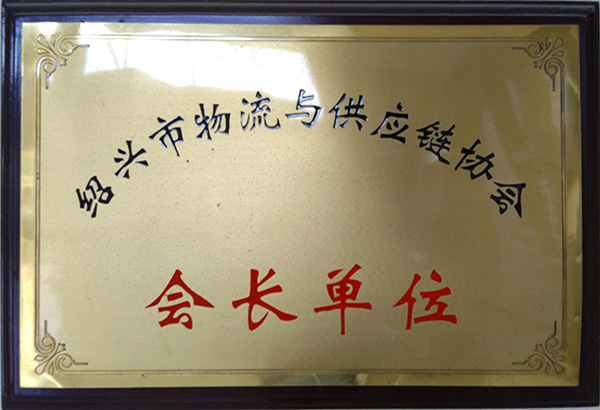 绍兴市物流与供应链协会
会长单位